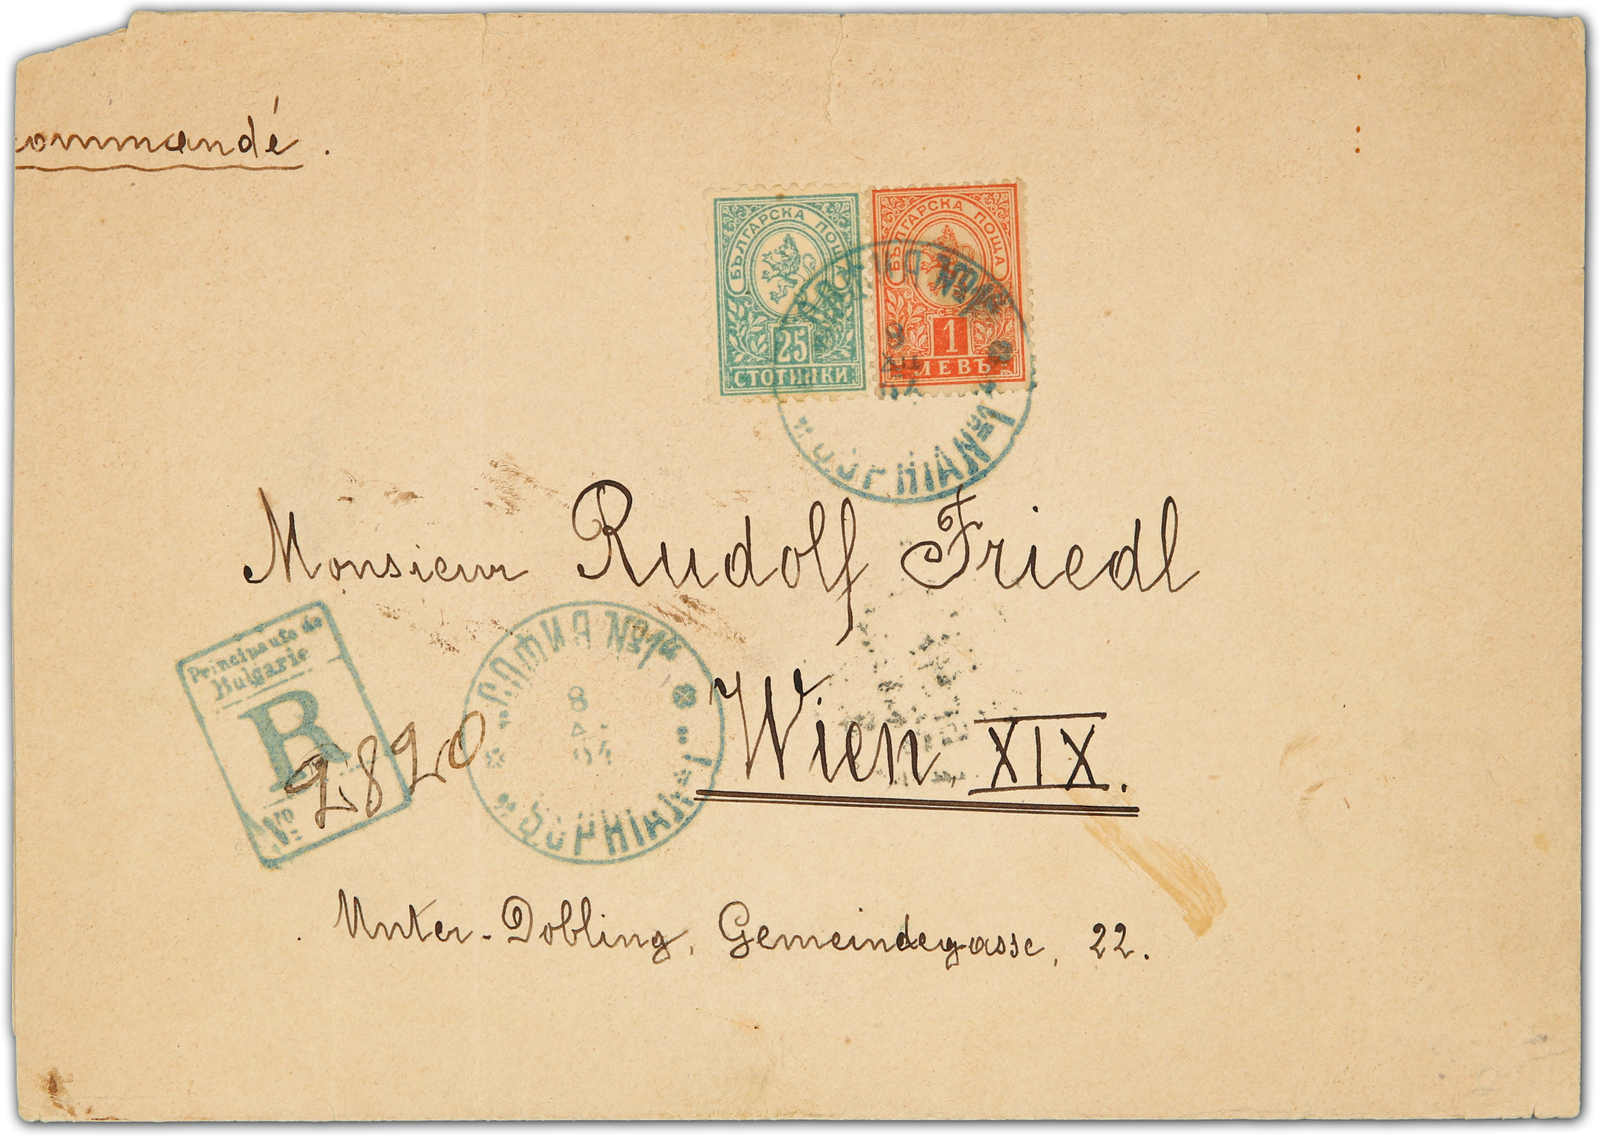 commandé.
БЪЛГАРСКА ПОЩА
25
СТОТИНКИ
БЪЛГАРСКА ПОЩА
1
ЛЕВЪ
Monsieur Rudolf Friedl
Principauté de
Bulgarie
R
No 2820
"СОФИЯ №1"
8
94
"SOPHIA N=1"
Wien, XIX.
Unter-Dobling, Gemeindegasse, 22.